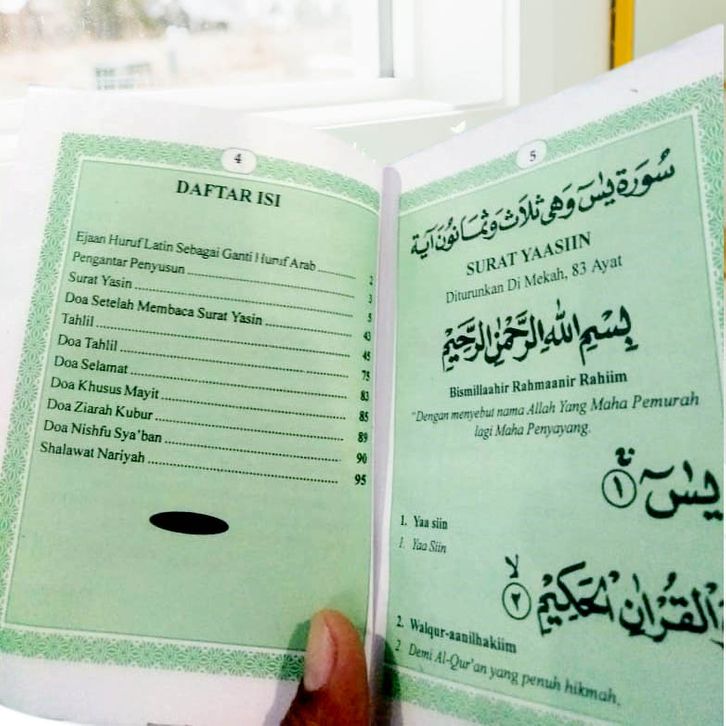 4
DAFTAR ISI
Ejaan Huruf Latin Sebagai Ganti Huruf Arab 2
Pengantar Penyusun 3
Surat Yasin 5
Doa Setelah Membaca Surat Yasin 43
Tahlil 45
Doa Tahlil 75
Doa Selamat 83
Doa Khusus Mayit 85
Doa Ziarah Kubur 89
Doa Nishfu Sya'ban 90
Shalawat Nariyah 95
5
سُورَة يٰسٓ وَهِىَ ثَلَاثٌ وَثَمَانُونَ آيَة
SURAT YAASIIN
Diturunkan Di Mekah, 83 Ayat
بِسْمِ اللهِ الرَّحْمٰنِ الرَّحِيْمِ
Bismillaahir Rahmaanir Rahiim
"Dengan menyebut nama Allah Yang Maha Pemurah
lagi Maha Penyayang.
يٰسٓ ۚ ١
1. Yaa siin
1. Yaa Siin
القُرْاٰنِ الْحَكِيْمِ ۙ ٢
2. Walqur-aanilhakiim
2. Demi Al-Qur'an yang penuh hikmah,